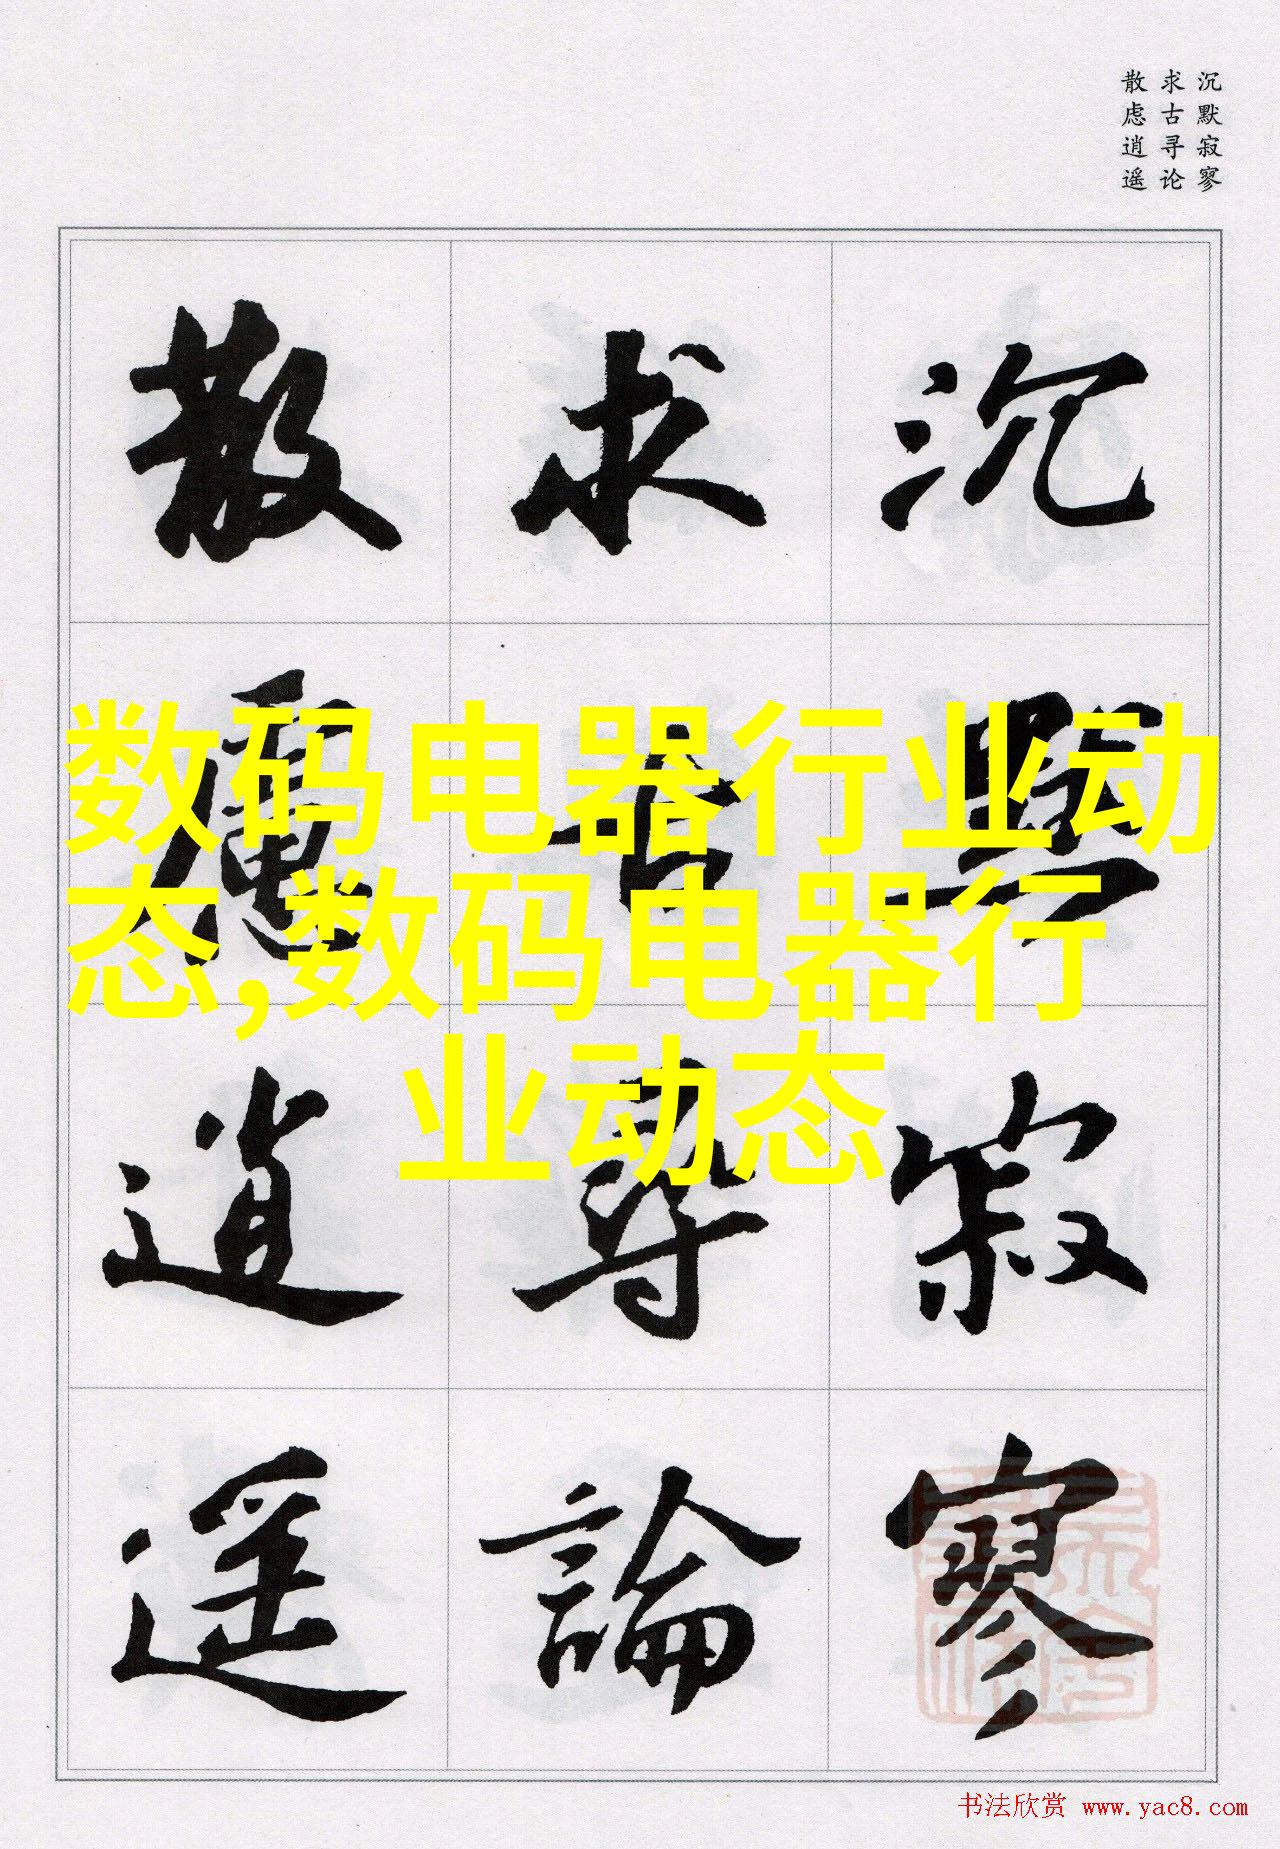 沉默寂寥
求古寻论
散虑逍遥
沉默寂寥
求古尋論
散慮逍遥
数码电器行业动
态,数码电器行
业动态
书法欣赏 www.yac8.com